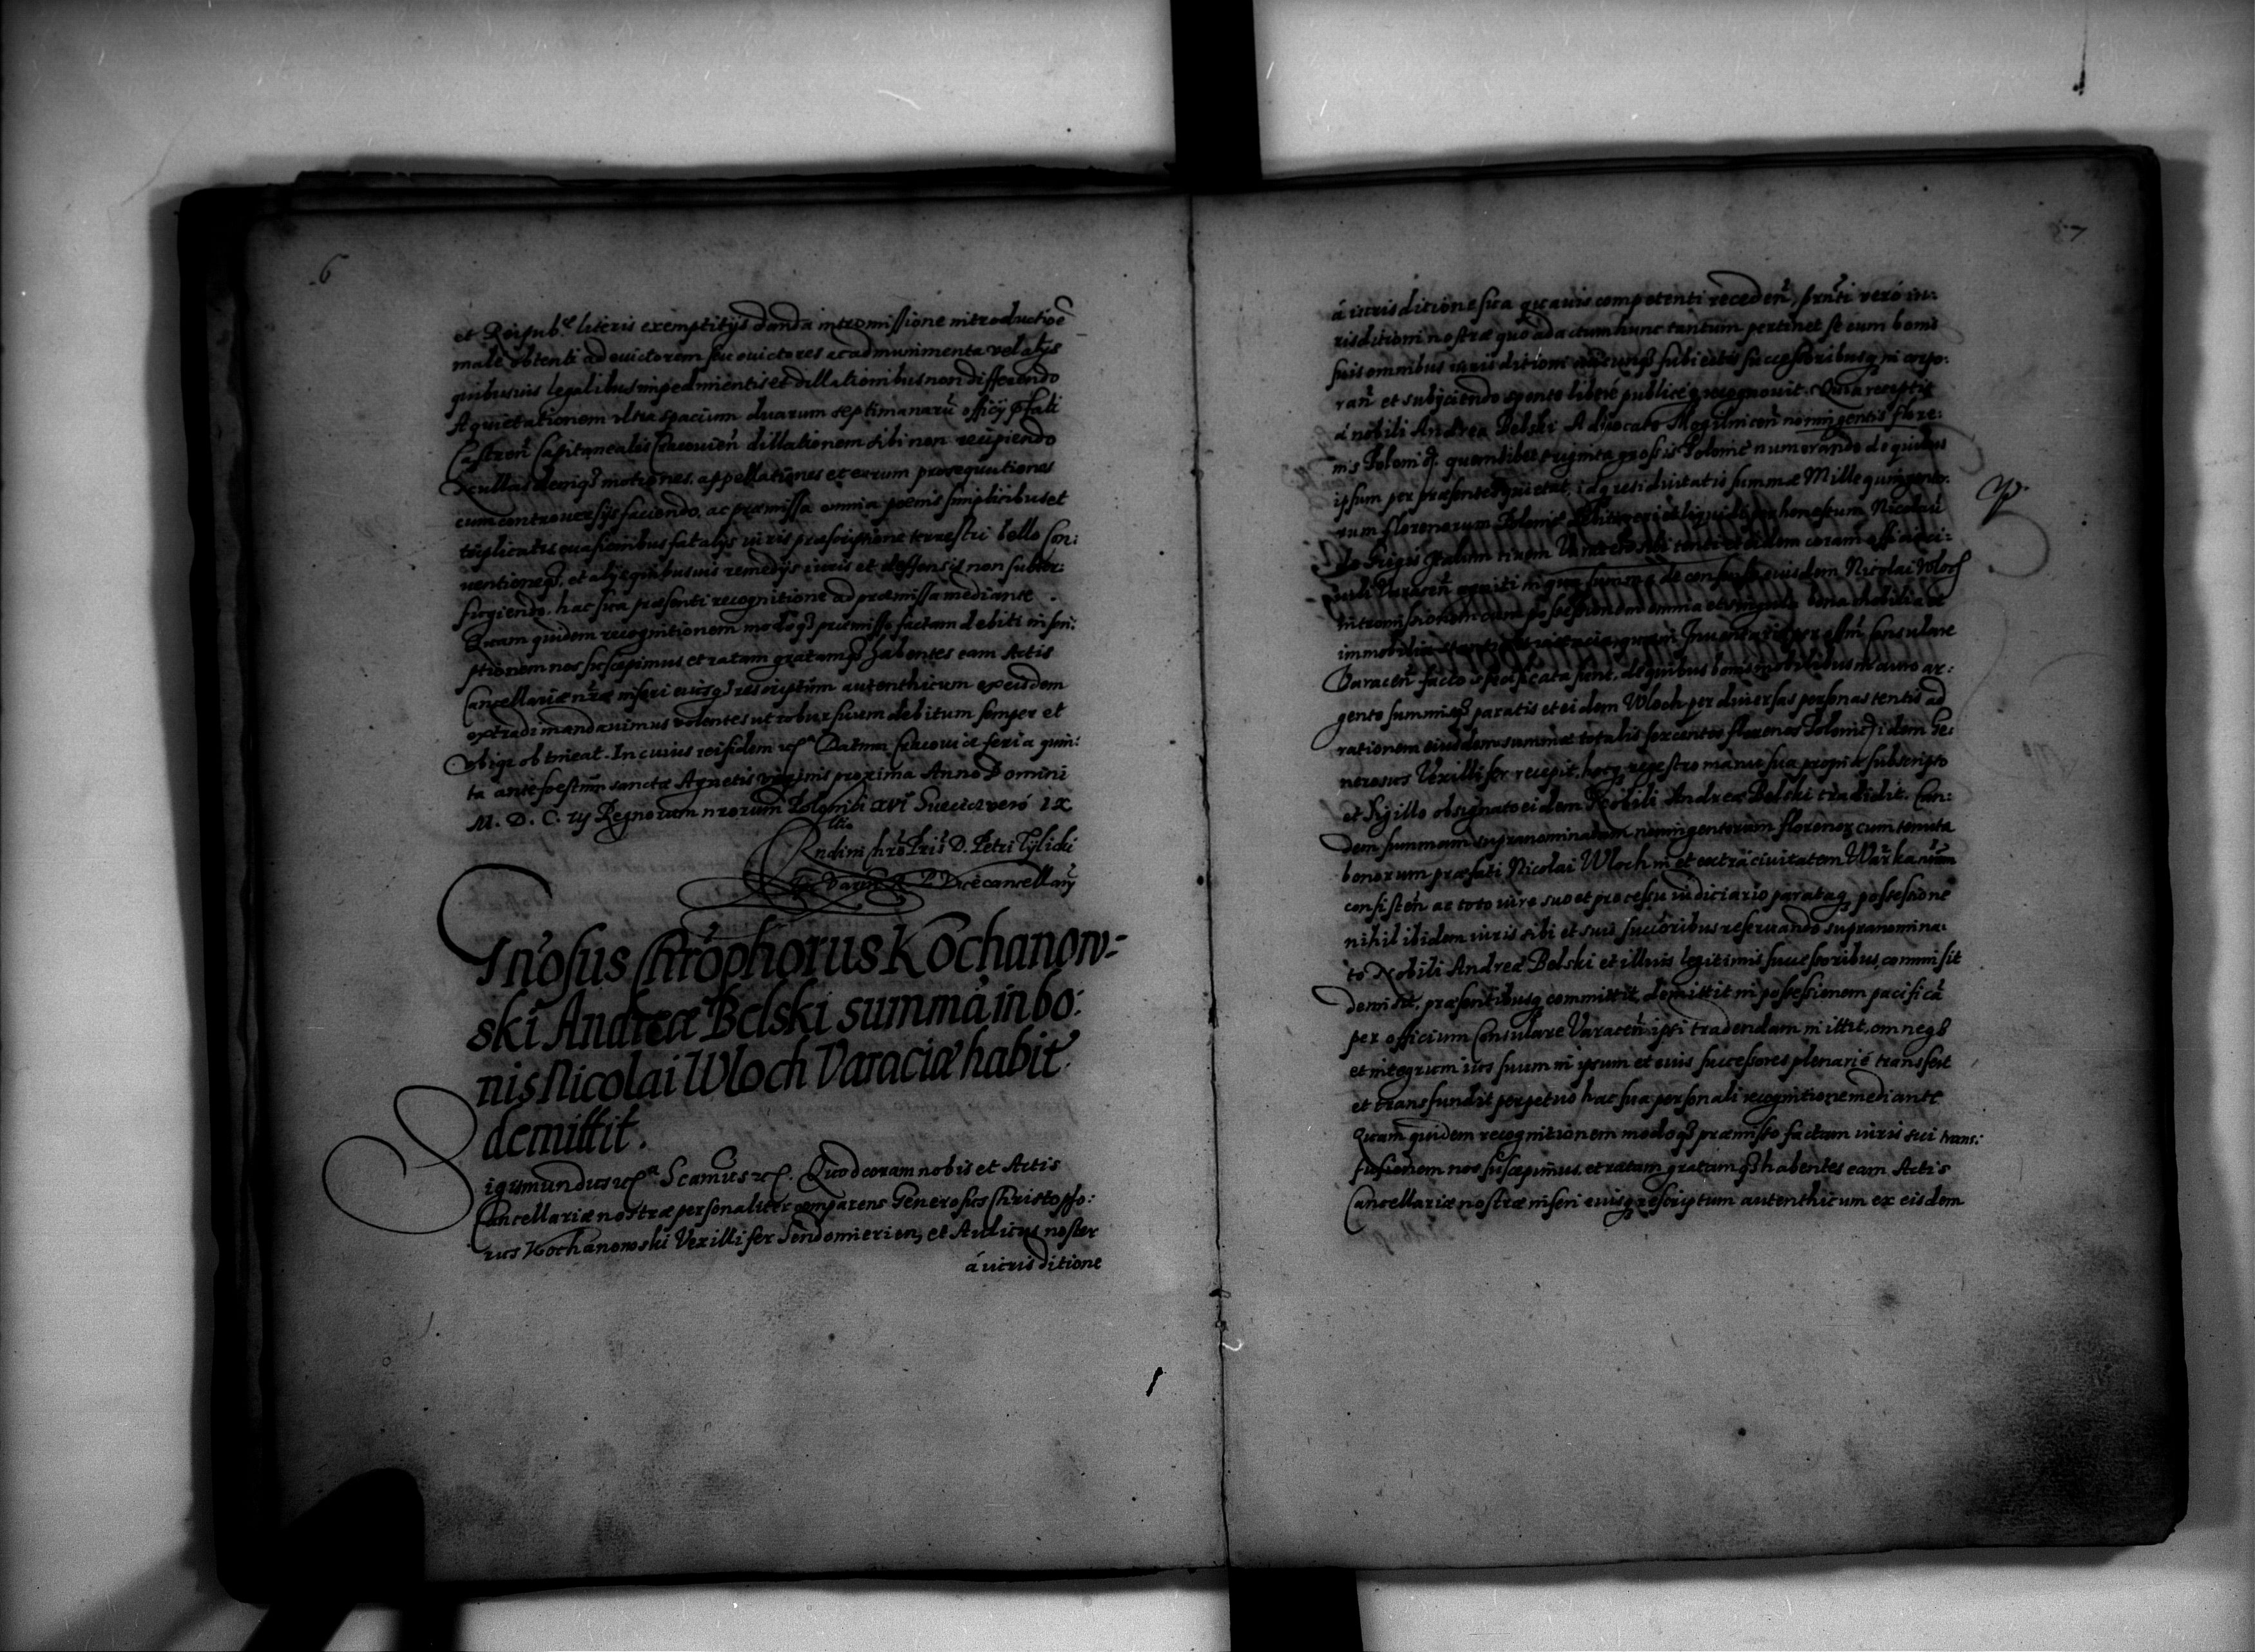 6
et Reipub.ce literis exemptitijs danda intromissione introductioē
male obtenti ad evictorem seu evictores ac ad munimenta vel alijs
quibusvis legalibus impedimentis et dillationibus non differendo
Aquietationem ultra spacium duarum septimanarū officij pfati
Castreñ Capitanealis Cracovieñ dillationem sibi non recipiendo
Nullas deniq̃ motiones, appellationes et earum prosequutiones
cum controversijs faciendo, ac præmissa omnia poenis simplicibus et
triplicatis evasionibus fatalijs iuris præscriptione terrestri bello con:
ventioneq̃, et alijs quibusvis remedijs iuris et deffensis non subter:
fugiendo, hac sua præsenti recognitione ad præmissa mediante
Quam quidem recognitionem modoq̃ præmisso factam debiti inscri:
ptionem nos suscepimus et ratam gratamq̃ habentes eam Actis
Cancellariæ nr̃æ inseri eiusq̃ rescriptum autenthicum ex eisdem
extradi mandavimus volentes ut robur suum debitum semper et
ubiq̃ obtineat. In cuius rei fidem etc. Datum Cracoviæ feria quin:
ta ante foestum sanctæ Agnetis virginis proxima Anno Domini
M. D. C. iij Regnorum nrorum Poloniæ xvi Sueciæ vero ix
Rndim Chro Pris D. Petri Tylicki
R. P. Vicecancellarij
Gnōsus Chrōphorus Kochanow=
ski Andreæ Belski summā in bo:
nis Nicolai Wloch Varaciæ habit
demittit.
Sigismundus etc.a S camus etc. Quod coram nobis et Actis
Cancellariæ nostræ personaliter comparens Generosus Christopho:
rus Kochanowski Vexillifer Sendomirien, et Aulicus noster
á iurisditione
7
á iurisditione sua quavis competenti recedeñ, prñti veró iu:
risditioni nostræ quo ad actum hunc tantum pertinet se cum bonis
suis omnibus iurisditioni subiectis successoribusq̃ in corpo:
rañ et subijciendo sponte liberé publicé q̃ recognovit. Quia receptis
á nobili Andrea Belski Advocato Mogilnicen nonningentis flore:
nis Poloniq̃. quemlibet triginta grossis Poloniē numerando de quibus
ipsum per præsentes quietat, idq̃ residuitatis summæ Mille quingento:
rum florenorum Poloniq̃ per honestum Nicolaū
coram officio ci:
vili Varaceñ in qua summa de consensu eiusdem Nicolai Wloch
intromissionem cum possessionem omnia et singula bona mobilia et
immobilia Inventario per offm Consulare
Varaceñ facto specificata sunt, de quibus bonis mobilibus in auro ar:
gento summisq̃ paratis et eidem Wloch per diversas personas tentis ad
rationem eiusdem summæ totalis sexcentos florenos Poloniq̃ idem Ge:
nerosus Vexillifer recepit, hocq̃ regestro manu sua propria subscripto
et Sigillo obsignato eidem Nobili Andreæ Belski tradidit. Ean:
dem summam supranominatam nonningentorum florenor cum tenuta
bonorum præfati Nicolai Wloch in et extra civitatem Warka
consisteñ ac toto iure suo et processu iudiciario parataq̃ possessione
nihil ibidem iuris sibi et suis succoribus reservando supranomina:
to Nobili Andreæ Belski et illius legitimis successoribus commisit
demisit, præsentibusq̃ committit, demittit in possessionem pacificā
per officium Consulare Varaceñ ipsi tradendam mittit, omneq̃
et integrum ius suum in ipsum et eius successores plenarié transfert
et transfundit perpetuo hac sua personali recognitione mediante
Quam quidem recognitionem modoq̃ præmisso factam iuris sui trans:
fusionem nos suscepimus, et ratam gratamq̃ habentes eam Actis
Cancellariæ nostræ inseri eiusq̃ rescriptum autenthicum ex eisdem